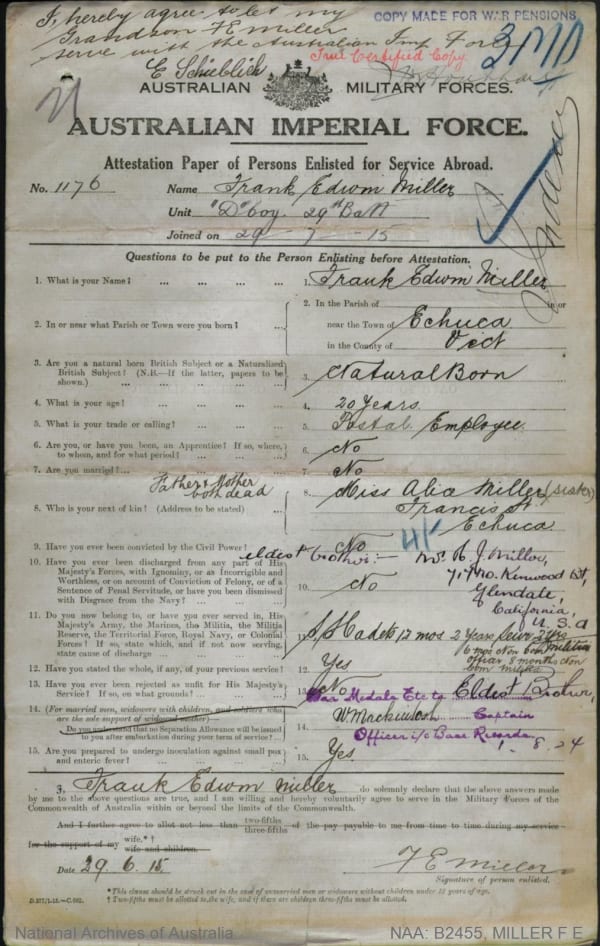 I, hereby agree to let my
Grandson F E Miller
serve with the Australian Imp Force
E Schieblich
COPY MADE FOR WAR PENSIONS
True Certified Copy
AUSTRALIAN MILITARY FORCES.
AUSTRALIAN IMPERIAL FORCE.
Attestation Paper of Persons Enlisted for Service Abroad.
No. 1176 Name Frank Edwin Miller
Unit "D" Coy. 29th Batt
Joined on 29 - 7 - 15
Questions to be put to the Person Enlisting before Attestation.
1. What is your Name? ... ... ... ... 1. Frank Edwin Miller
2. In or near what Parish or Town were you born? ... 2. In the Parish of in or
near the Town of Echuca
in the County of Vict
3. Are you a natural born British Subject or a Naturalised
British Subject? (N.B.—If the latter, papers to be
shown.) ... 3. Natural Born
4. What is your age? ... 4. 20 Years
5. What is your trade or calling? ... 5. Postal Employee
6. Are you, or have you been, an Apprentice? If so, where,
to whom, and for what period? ... 6. No
7. Are you married? ... 7. No
Father & Mother
both dead
8. Who is your next of kin? (Address to be stated) ... 8. Miss Alia Miller (sister)
Francis St
Echuca
9. Have you ever been convicted by the Civil Power? No
eldest brother:— Mr A. J. Miller,
717 No. Kenwood St,
Glendale,
California,
U.S.A
10. Have you ever been discharged from any part of His
Majesty's Forces, with Ignominy, or as Incorrigible and
Worthless, or on account of Conviction of Felony, or of a
Sentence of Penal Servitude, or have you been dismissed
with Disgrace from the Navy? ... 10. No
11. Do you now belong to, or have you ever served in, His
Majesty's Army, the Marines, the Militia, the Militia
Reserve, the Territorial Force, Royal Navy, or Colonial
Forces? If so, state which, and if not now serving,
state cause of discharge 11. S/S Cadets 12 mos 2 Years Senr
6 mos Non Com
officer 8 months Non
Com Militia
12. Have you stated the whole, if any, of your previous service? 12. Yes
13. Have you ever been rejected as unfit for His Majesty's
Service? If so, on what grounds? ... 13. No
War Medals Etc to Eldest Brother,
14. (For married men, widowers with children, and soldiers who
are the sole support of widowed mother)—
Do you understand that no Separation Allowance will be issued
to you after embarkation during your term of service? 14.
W. Mackintosh Captain
Officer i/c Base Records
1. 8. 24
15. Are you prepared to undergo inoculation against small pox
and enteric fever? ... 15. Yes
I, Frank Edwin Miller do solemnly declare that the above answers made
by me to the above questions are true, and I am willing and hereby voluntarily agree to serve in the Military Forces of the
Commonwealth of Australia within or beyond the limits of the Commonwealth.
And I further agree to allot not less than two-fifths
three-fifths of the pay payable to me from time to time during my service
for the support of my wife.*†
wife and children.
Date 29. 6. 15.
F E Miller
Signature of person enlisted.
*This clause should be struck out in the case of unmarried men or widowers without children under 18 years of age.
†Two-fifths must be allotted to the wife, and if there are children three-fifths must be allotted.
National Archives of Australia
NAA: B2455, MILLER F E